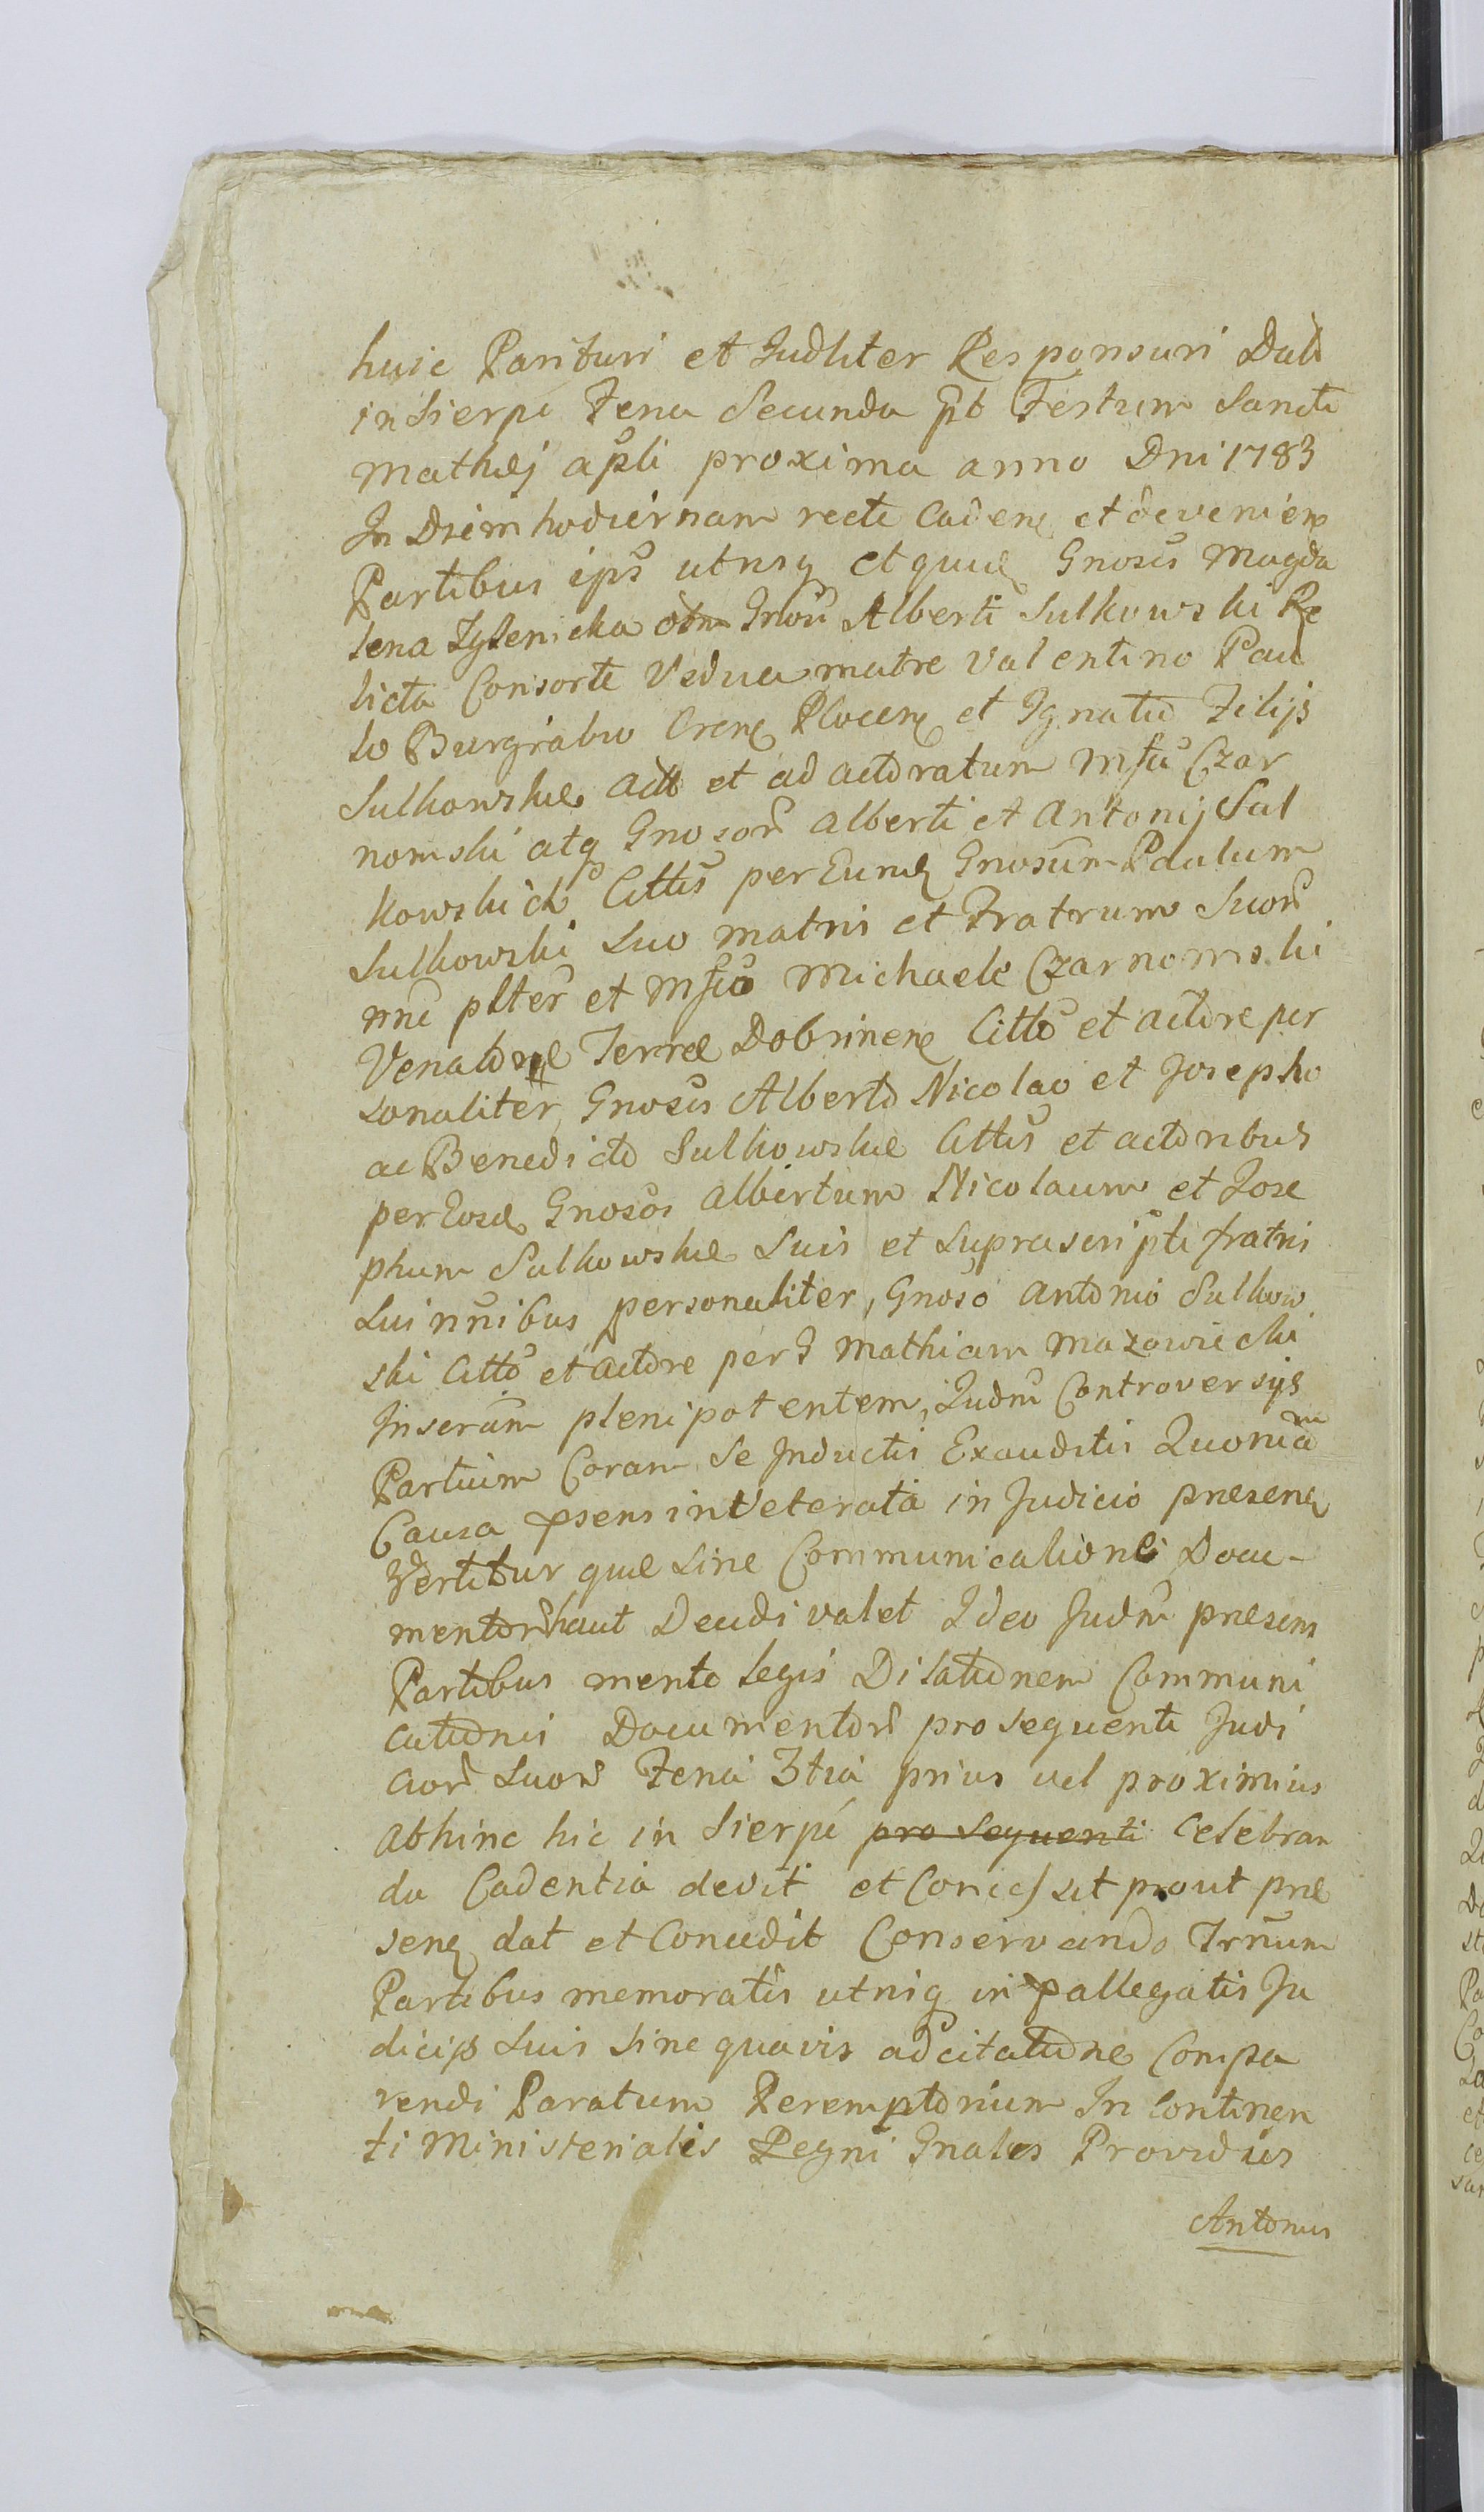 huic Parituri et Judliter Responsuri Dat
in Sierpc Feria Secunda pt Festum Sancti
Mathæj apli proxima anno Dni 1783
In Diem hodiernam recte Caden et devenien
Partibus ips utrisq et quid Gnosis Magda
lena Zglenicka olm Gnosi Alberti Sulkowski Re
licta Consorte Vidua matre Valentino Pau
lo Burgrabio Cren Plocen et Ignatio Filijs
Sulkowskie Act et ad actoratum Mfci Czar
nomski atq Gnosor Alberti et Antonij Sul
kowskich Cittis per Eund Gnosum Paulum
Sulkowski suo matris et Fratrum Suor
nne plter et Mfco Michaele Czarnomski
Venatore Terræ Dobrinen Citto et actore per
sonaliter, Gnosis Alberto Nicolao et Josepho
ac Benedicto Sulkowskie Cittis et actoribus
per Eosd Gnosos Albertum Nicolaum et Jose
phum Sulkowskie Suis et Suprascripti fratris
Sui nnibus personaliter, Gnoso Antonio Sulkow
ski Citto et actore per G Mathiam Mazowiecki
Inserum plenipotentem, Judm Controversijs
Partium Coram Se Inductis Exauditis Quoniam
Causa psens inveterata in Judicio præsen
Vertitur quæ Sine Communicatione Docu-
mentor haut Decidi valet Ideo Judm præsens
Partibus merito legis Dilationem Communi
cationis Documentor pro sequenti Judi
cior Suor Feria 3tia prius vel proximius
abhinc hic in Sierpc pro sequenti Celebran
da Cadentia dedit et Concessit prout præ
sen dat et Concedit Conservando Trnum
Partibus memoratis utrisq in pallegatis Ju
dicijs Suis Sine quavis adcitatione Compa
rendi Paratum Peremptorium In Continen
ti Ministerialis Regni Gnalis Providus
Antonius